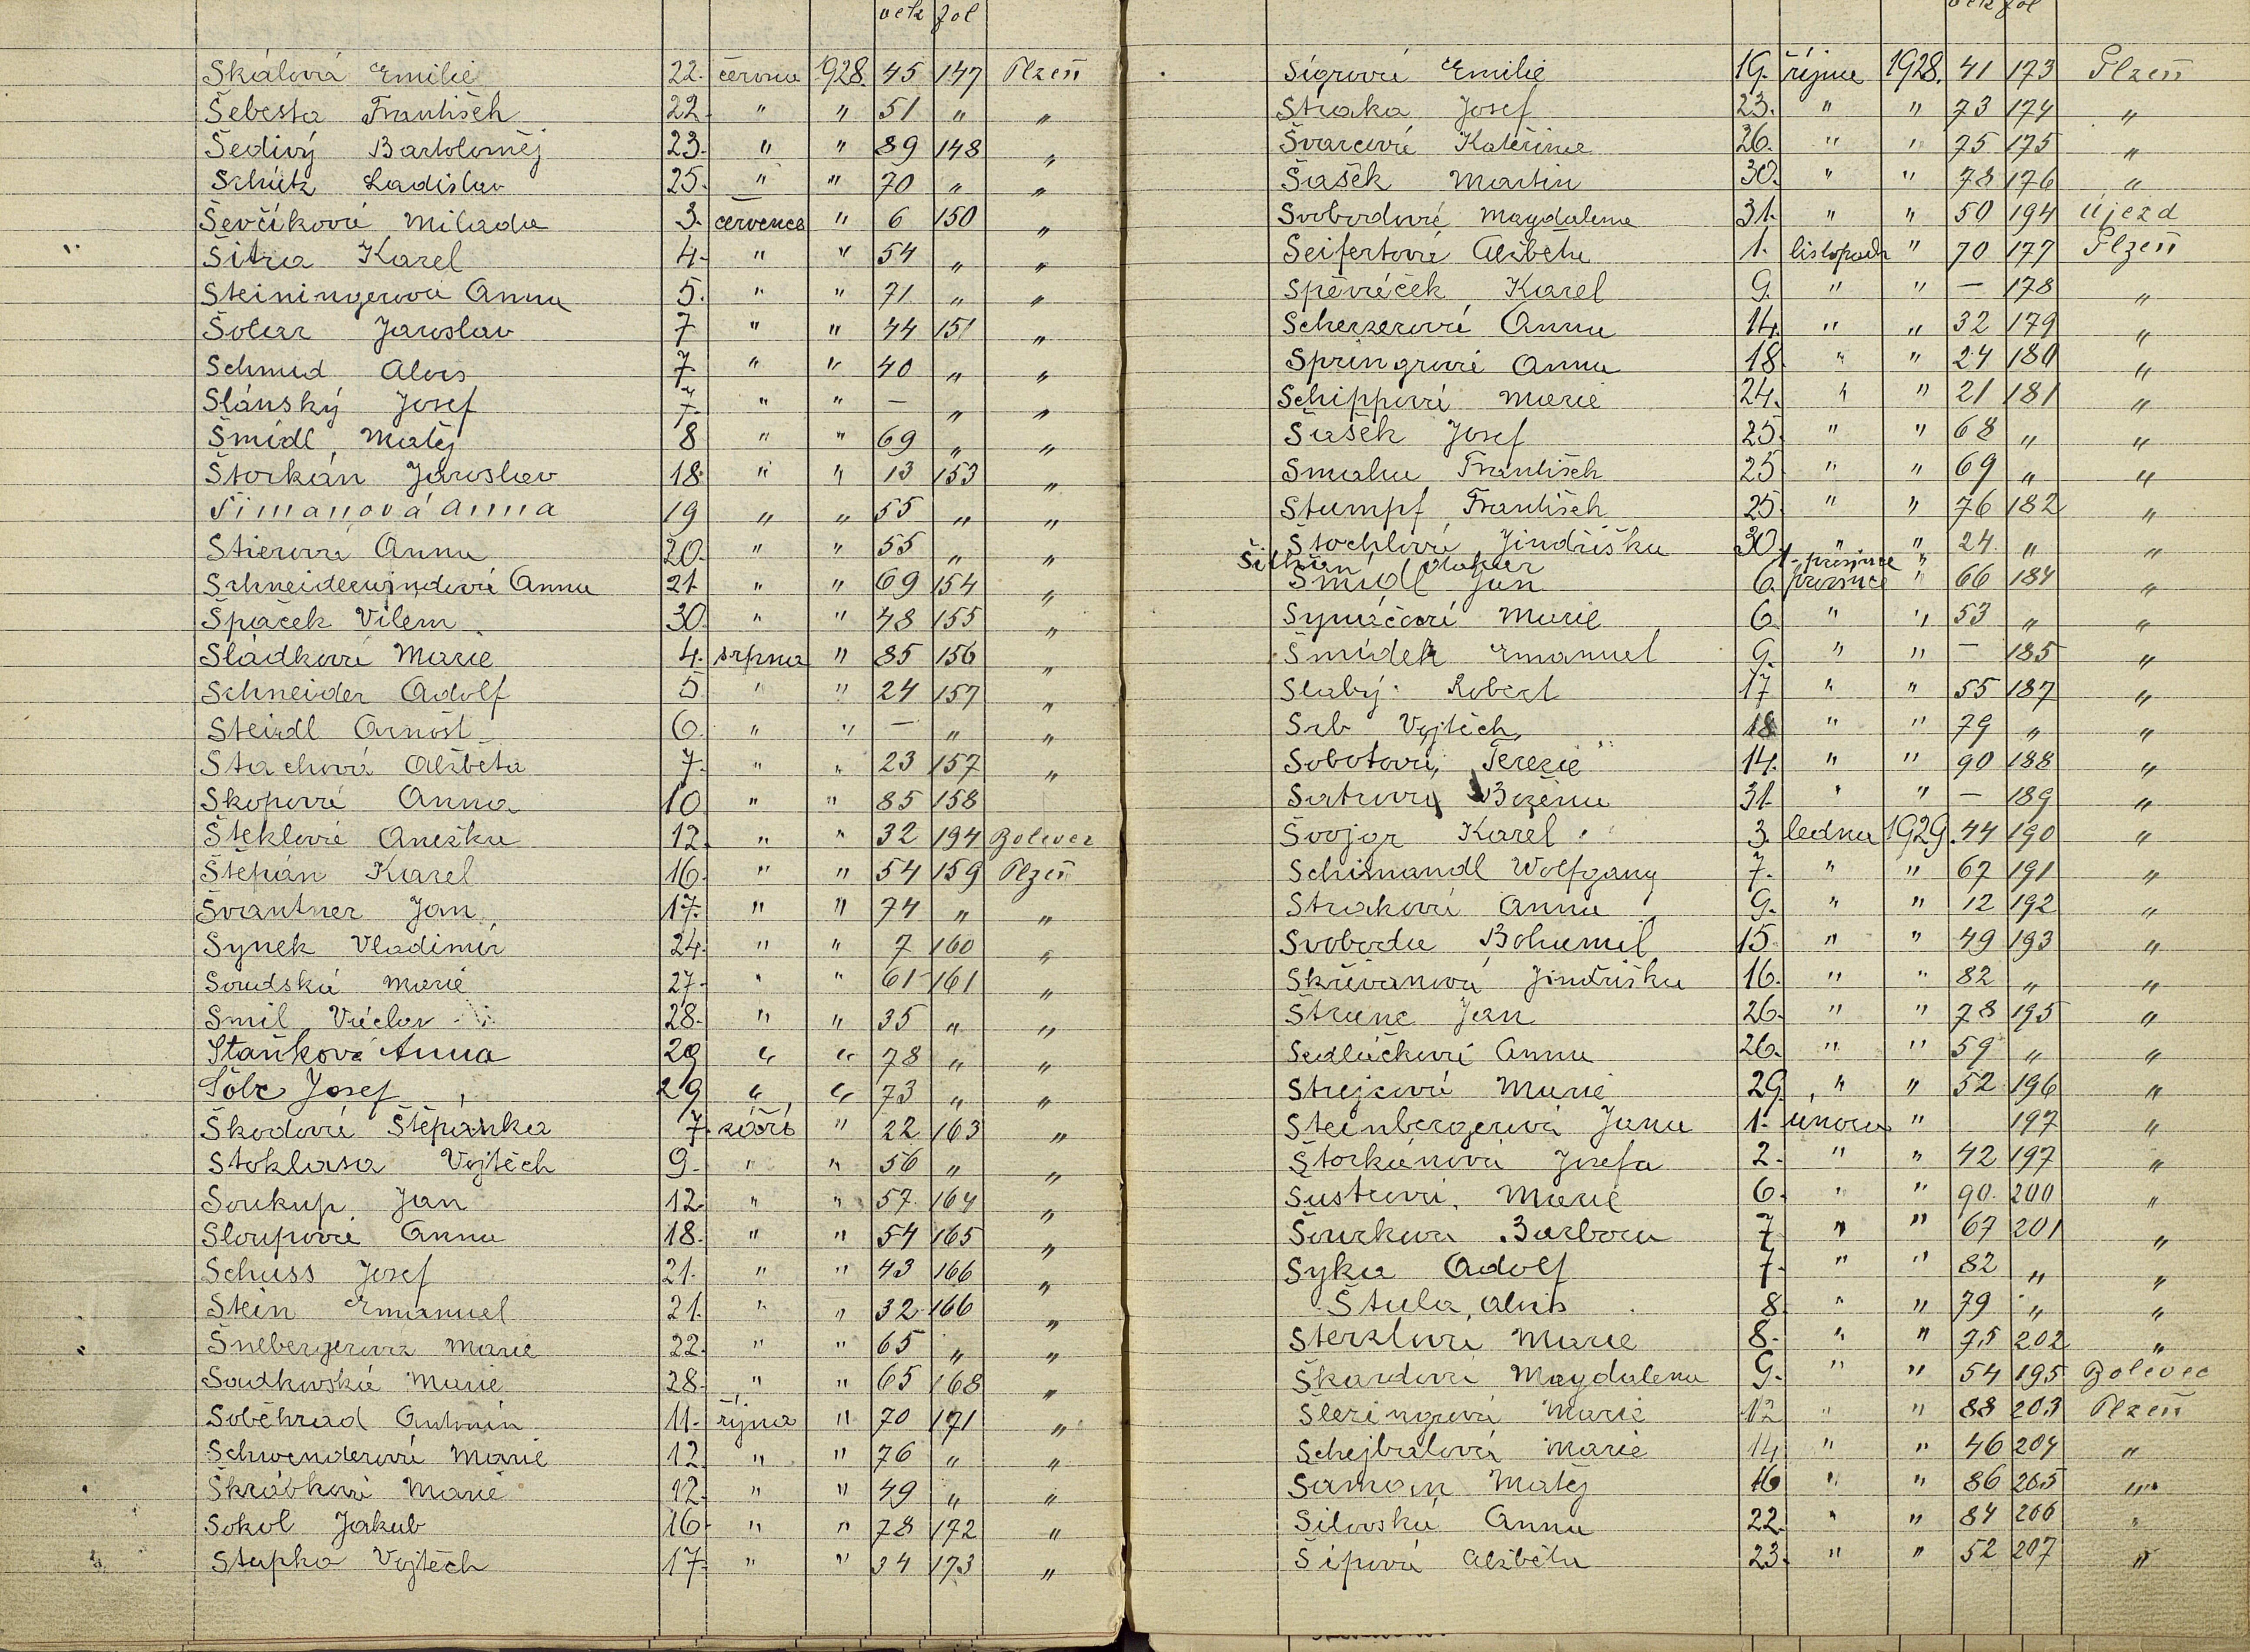 věk fol
Skálová Emilie 22. června 1928. 45 147 Plzeň
Šebesta František 22. " " 51 " "
Šedivý Bartoloměj 23. " " 89 148 "
Schütz Ladislav 25. " " 70 " "
Ševčíková Milada 3. července " 6 150 "
Šitra Karel 4. " " 54 " "
Steiningerová Anna 5. " " 71 " "
Šolar Jaroslav 7 " " 44 151 "
Schmid Alois 7. " " 40 " "
Slánský Josef 7. " " — " "
Šmídl Matěj 8 " " 69 " "
Štorkán Jaroslav 18. " " 13 153 "
Šimanová Anna 19 " " 55 " "
Stierová Anna 20. " " 55 " "
Schneiderwindová Anna 21. " " 69 154 "
Špaček Vilém 30. " " 48 155 "
Sládková Marie 4. srpna " 85 156 "
Schneider Adolf 5 " " 24 157 "
Steidl Arnošt 6. " " — " "
Stachová Alžběta 7. " " 23 157 "
Skopová Anna 10 " " 85 158
Šteklová Anežka 12. " " 32 194 Bolevec
Štěpán Karel 16. " " 54 159 Plzeň
Švantner Jan 17. " " 74 " "
Synek Vladimír 24. " " 7 160 "
Soudská Marie 27. " " 61 161 "
Smil Václav 28. " " 35 " "
Staňková Anna 29 " " 78 " "
Šolc Josef 29 " " 73 " "
Škodová Štěpánka 7. září " 22 163 "
Stoklasa Vojtěch 9. " " 56 " "
Soukup Jan 12. " " 57 164 "
Sloupová Anna 18. " " 54 165 "
Schuss Josef 21. " " 43 166 "
Stein Emanuel 21. " " 32 166 "
Šnebergerová Marie 22. " " 65 " "
Sadkovská Marie 28. " " 65 168 "
Soběhrad Antonín 11. října " 70 171 "
Schwenderová Marie 12. " " 76 " "
Škrábková Marie 12. " " 49 " "
Sokol Jakub 16. " " 78 172 "
Stupka Vojtěch 17. " " 34 173 "
věk fol
Sigrová Emilie 19. října 1928. 41 173 Plzeň
Straka Josef 23. " " 73 174 "
Švarcová Kateřina 26. " " 75 175 "
Šašek Martin 30. " " 78 176 "
Svobodová Magdalena 31. " " 50 194 Újezd
Seifertová Alžběta 1. listopadu " 70 177 Plzeň
Spěváček Karel 9. " " — 178 "
Scherzerová Anna 14. " " 32 179 "
Springrová Anna 18. " " 24 180 "
Schippová Marie 24. " " 21 181 "
Šašek Josef 25. " " 68 " "
Smaha František 25 " " 69 " "
Stumpf František 25. " " 76 182 "
Štochlová Jindřiška 30. " " 24 " "
1. prosince "
Šmídl Jan 6. prosince " 66 184 "
Synáčová Marie 6. " " 53 " "
Šmídek Emanuel 9. " " — 185 "
Slabý Robert 17 " " 55 187 "
Srb Vojtěch 18 " " 79 " "
Sobotová Terezie 14. " " 90 188 "
Satrová Božena 31. " " — 189 "
Švojgr Karel 3. ledna 1929. 44 190 "
Schimandl Wolfgang 7. " " 67 191 "
Straková Anna 9. " " 12 192 "
Svoboda Bohumil 15. " " 49 193 "
Skřivanová Jindřiška 16. " " 82 " "
Štrunc Jan 26. " " 78 195 "
Sedláčková Anna 26. " " 59 " "
Strejcová Marie 29. " " 52 196 "
Steinbergerová Jana 1. února " 197 "
Štorkánová Josefa 2. " " 42 197 "
Šustrová Marie 6. " " 90 200 "
Šourková Barbora 7 " " 67 201 "
Syka Adolf 7. " " 82 " "
Štula Alois 8. " " 79 " "
Sterzlová Marie 8. " " 75 202 "
Škardová Magdalena 9. " " 54 195 Bolevec
Sleringrová Marie 12 " " 88 203 Plzeň
Schejbalová Marie 14 " " 46 204 "
Saman Matěj 16 " " 86 205 "
Silovská Anna 22. " " 84 206 "
Šípová Alžběta 23. " " 52 207 "